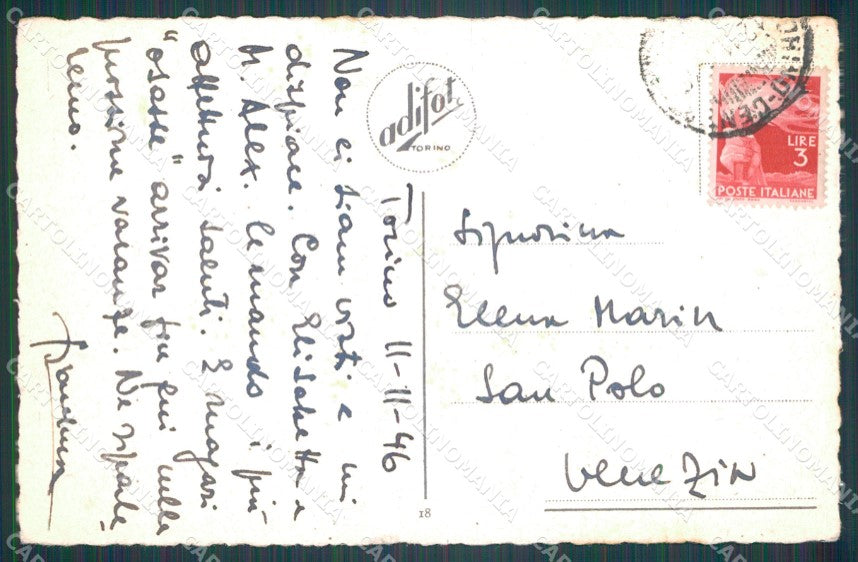 Torino 11-III-46
Non ci siam visti e mi
dispiace. Con Elisabetta e
M. Alex. le mando i più
affettuosi saluti. E magari
"osasse" arrivar fin qui nelle
prossime vacanze. Ne riparle-
remo.
adifot
TORINO
POSTE ITALIANE
LIRE
3
Signorina
Elena Marin
San Polo
Venezia
18
CARTOLINOMANIA